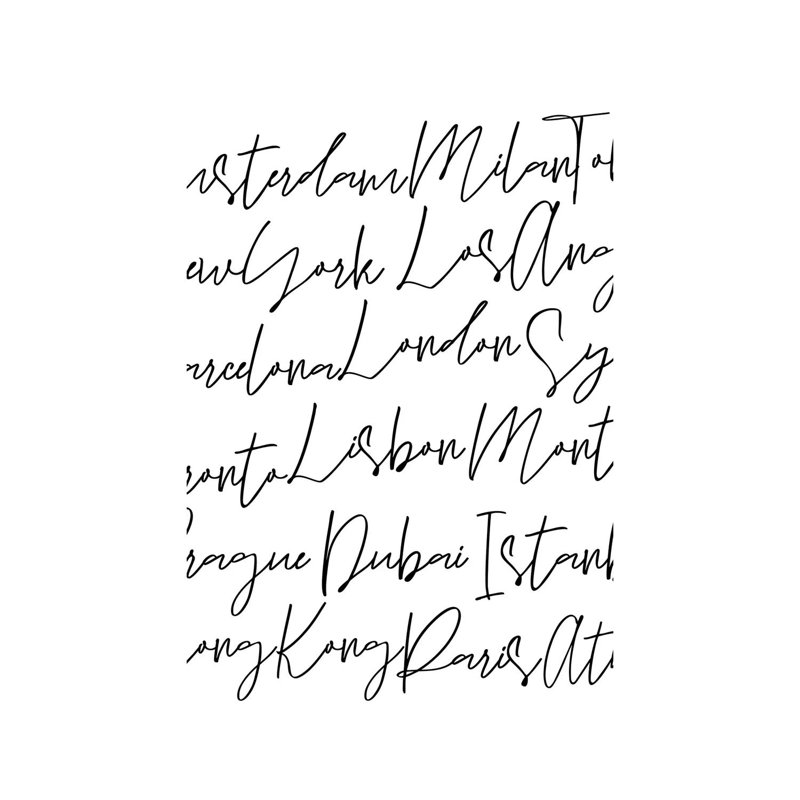 msterdam Milan Tok
ew York Los Ang
arcelona London Sy
ronto Lisbon Mont
rague Dubai Istanb
ong Kong Paris Ath